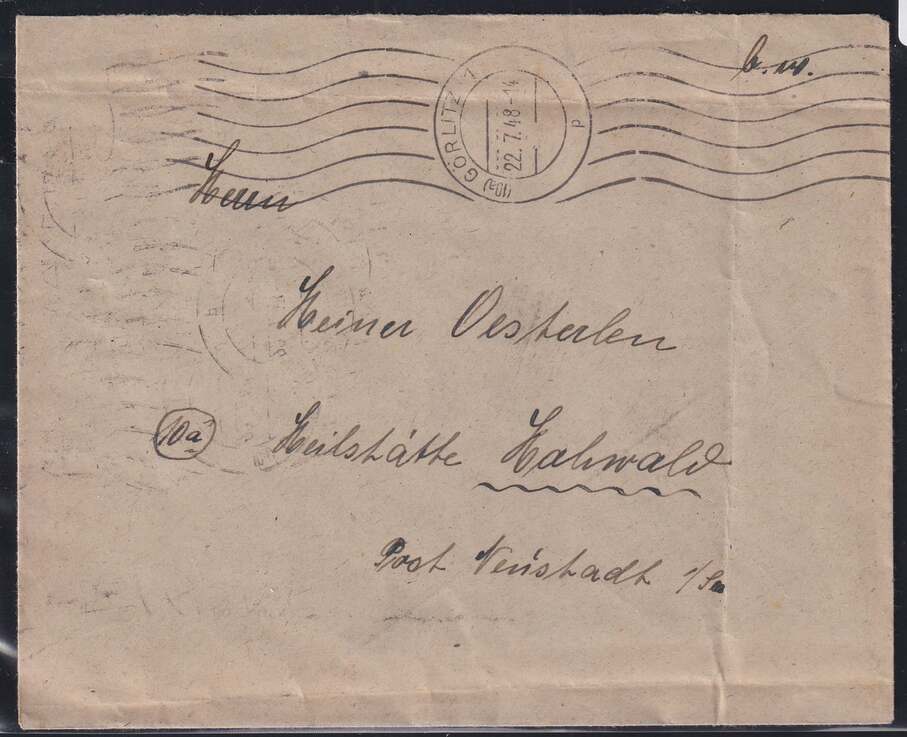 b. w.
(10a) GÖRLITZ 1
22.7.48-14
p
Herrn
Heiner Oesterlen
10a Heilstätte Hohwald
Post Neustadt i/Sa